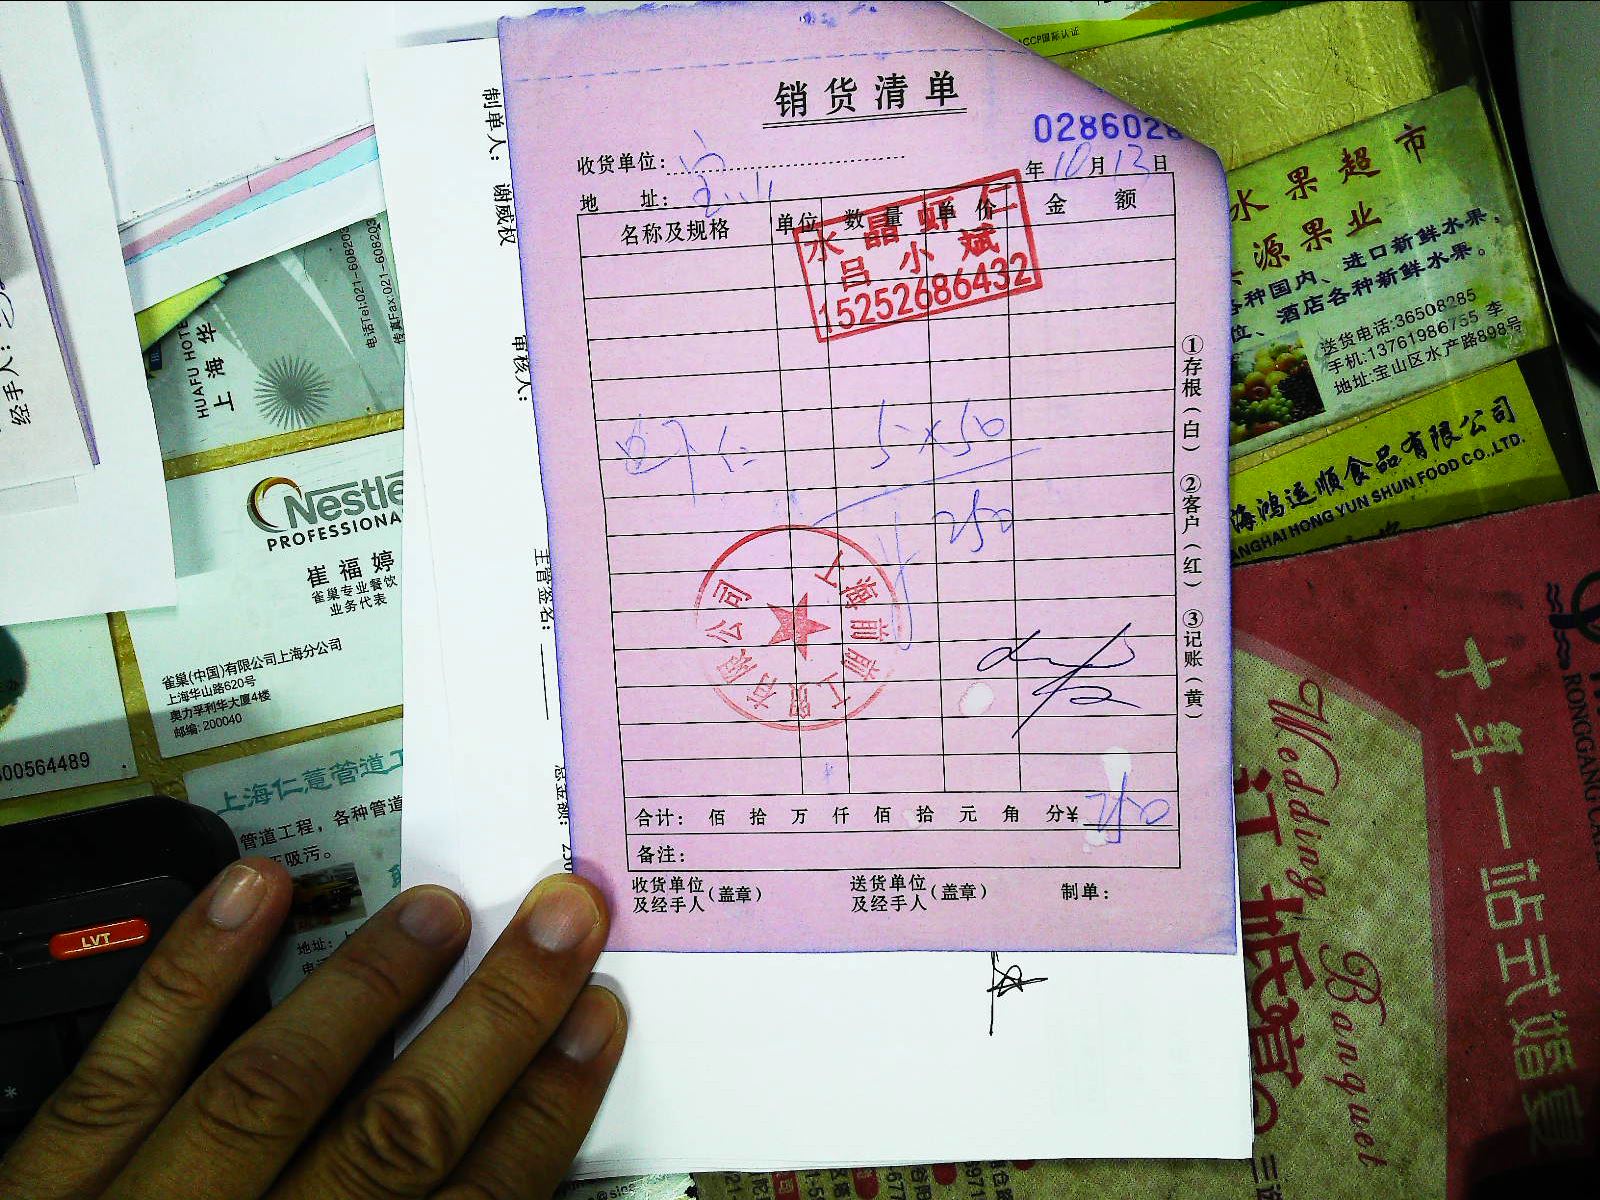 销货清单
0286026
收货单位：
年 10 月 13 日
地 址：宝山
名称及规格 单位 数量 单价 金额
水晶虾仁
吕小斌
15252686432
虾仁 5×50
250
上海前前工贸有限公司
合计： 佰 拾 万 仟 佰 拾 元 角 分¥ 250
备注：
收货单位及经手人（盖章） 送货单位及经手人（盖章） 制单：
①存根（白） ②客户（红） ③记账（黄）
制单人： 谢威权
审核人：
主管签名：
总金额：
经手人：
HUAFU HOTE
上海华
电话Tel:021-608203
传真Fax:021-608202
Nestle
PROFESSIONA
崔福婷
雀巢专业餐饮
业务代表
雀巢(中国)有限公司上海分公司
上海华山路620号
奥力孚利华大厦4楼
邮编: 200040
00564489
上海仁薏管道工
管道工程，各种管道
吸污。
地址：
LVT
ACCP国际认证
水果超市
源果业
各种国内、进口新鲜水果，
位、酒店各种新鲜水果。
送货电话:36508285
手机:13761986755 李
地址:宝山区水产路898号
海鸿运顺食品有限公司
ANGHAI HONG YUN SHUN FOOD CO.,LTD.
RONGGANG
十年一站式婚宴
Wedding Banquet